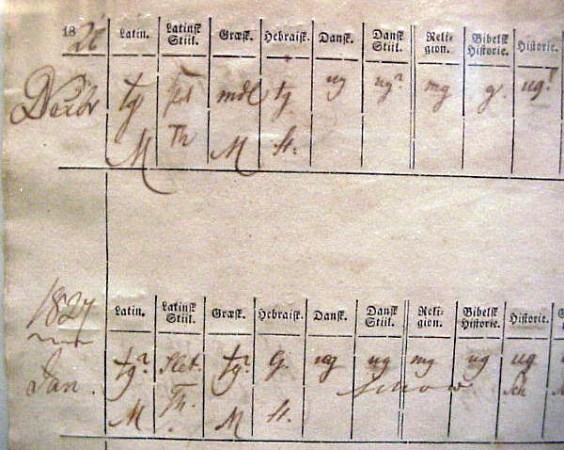 1826 Latin. Latinsk Stiil. Græsk. Hebraisk. Dansk. Dansk Stiil. Religion. Bibelsk Historie. Historie.
Decbr tg mdl tg ug ug? mg g. ug?
M Th M H.
1827 Latin. Latinsk Stiil. Græsk. Hebraisk. Dansk. Dansk Stiil. Religion. Bibelsk Historie. Historie. G
Jan. tg? Slet. tg? g. ug ug mg ug ug
M Th. M H.